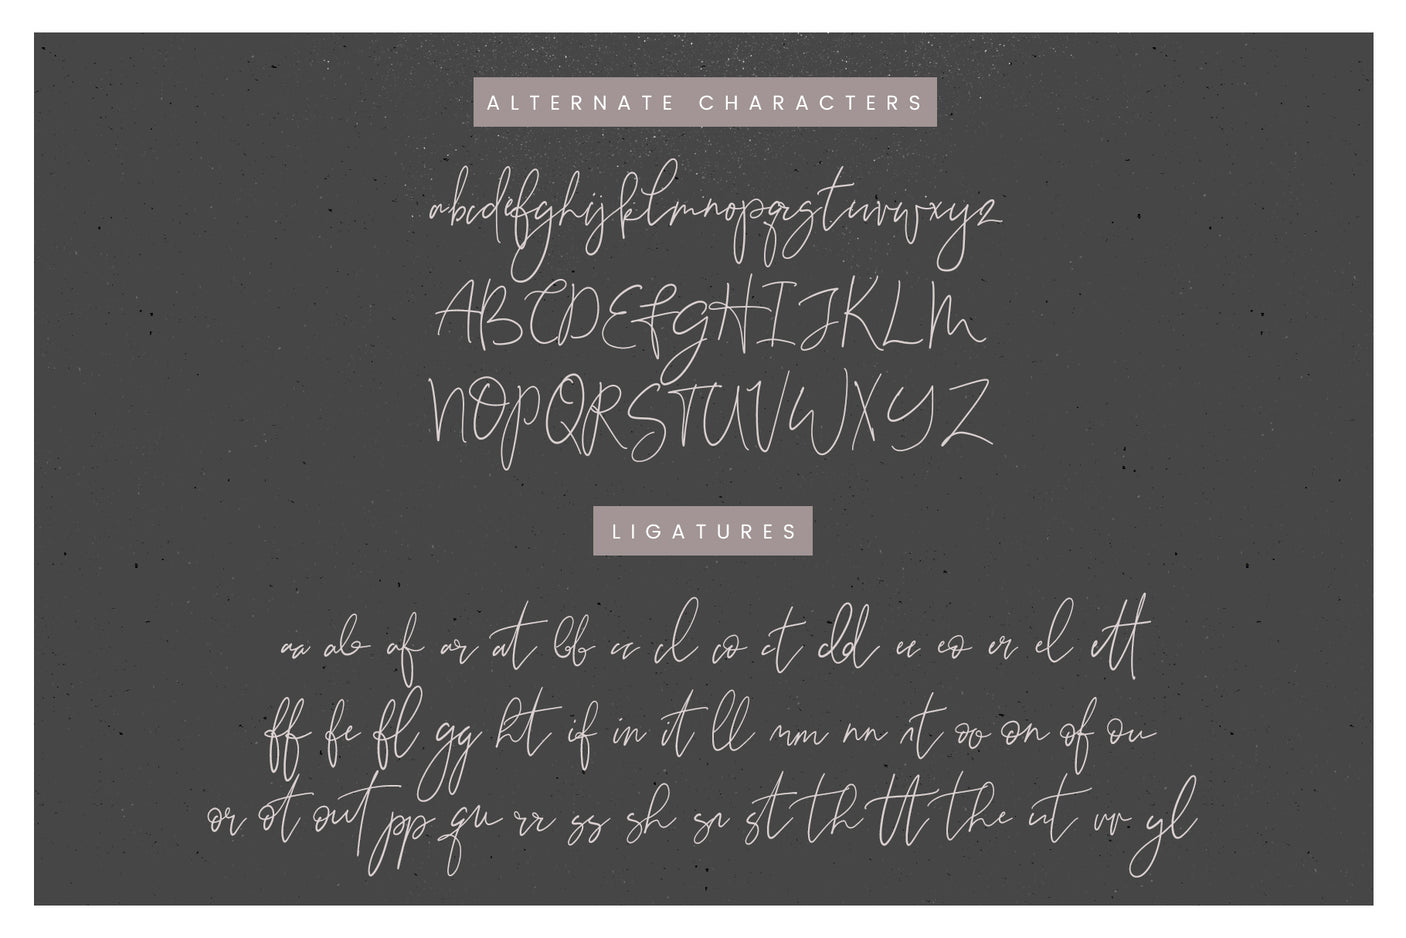 ALTERNATE CHARACTERS
abcdefghijklmnopqrstuvwxyz
ABCDEFGHIJKLM
NOPQRSTUVWXYZ
LIGATURES
aa ab af ar at bb cc cl co ct dd ee eo er el ett
ff fe fl gg ht if in it ll mm nn rt oo on of ou
or ot out pp qu rr ss sh sn st th tt the ut vv yl